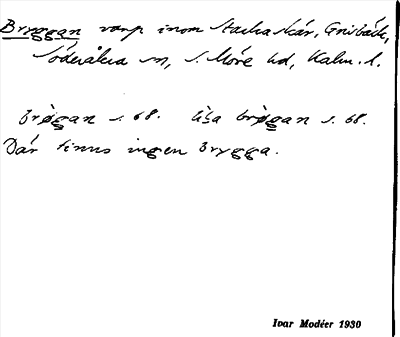 Bryggan varp inom Stackaskär, Grisbäck,
Söderåkra sn, S. Möre hd, Kalm. l.
brøgan s. 68. lisa brøgan s. 68.
Där finns ingen brygga.
Ivar Modéer 1930